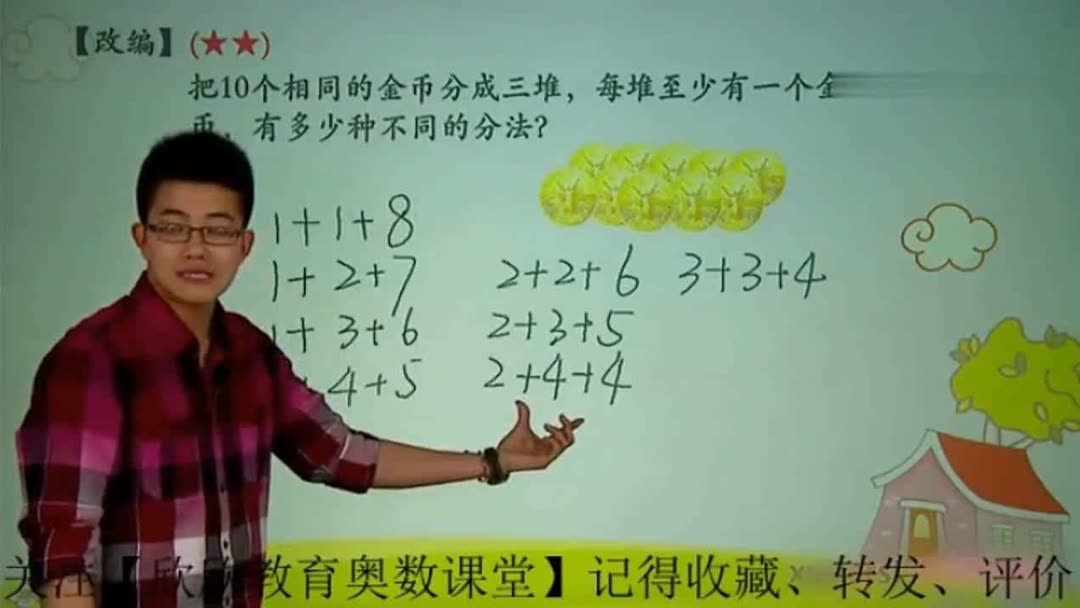 【改编】(★★)
把10个相同的金币分成三堆，每堆至少有一个金
币，有多少种不同的分法？
1+1+8
1+2+7 2+2+6 3+3+4
1+3+6 2+3+5
4+5 2+4+4
关注【欣欣教育奥数课堂】记得收藏、转发、评价